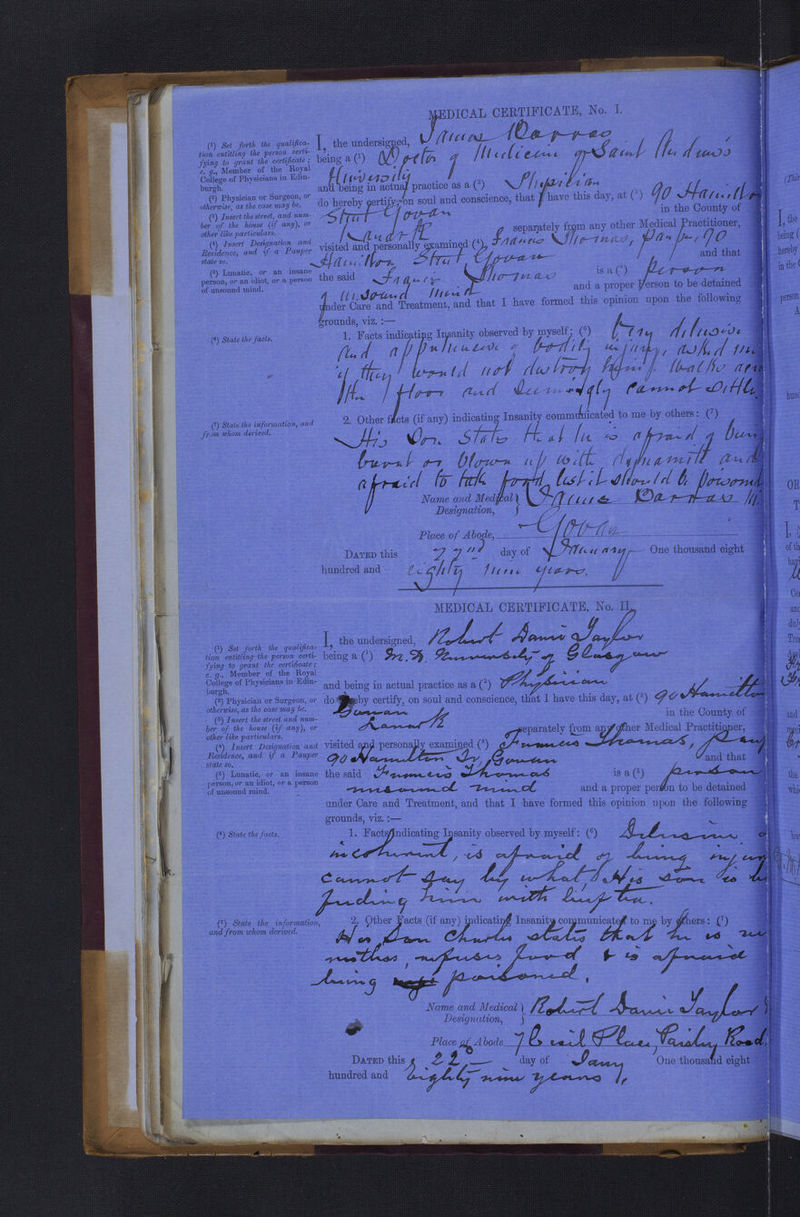 MEDICAL CERTIFICATE, No. I.
(¹) Set forth the qualifica-
tion entitling the person certi-
fying to grant the certificate;
e. g., Member of the Royal
College of Physicians in Edin-
burgh.
(²) Physician or Surgeon, or
otherwise, as the case may be.
(³) Insert the street, and num-
ber of the house (if any), or
other like particulars.
(⁴) Insert Designation and
Residence, and if a Pauper
state so.
(⁵) Lunatic, or an insane
person, or an idiot, or a person
of unsound mind.
I, the undersigned, James
being a (¹) Doctor of Medicine of Saint Andrews
University
and being in actual practice as a (²) Physician
do hereby certify, on soul and conscience, that I have this day, at (³) 90 Hamilton
Street Govan in the County of
Lanark separately from any other Medical Practitioner,
visited and personally examined (⁴), Francis Thomas, 90
Hamilton Street Govan and that
the said Francis Thomas is a (⁵) Person
of Unsound Mind and a proper Person to be detained
under Care and Treatment, and that I have formed this opinion upon the following
grounds, viz. :—
(⁶) State the facts.
1. Facts indicating Insanity observed by myself; (⁶) Very delusive
And apprehensive of bodily injury, asked me
if they would not destroy him, walks
the floor and seemingly cannot settle
(⁷) State the information, and
from whom derived.
2. Other facts (if any) indicating Insanity communicated to me by others: (⁷)
His Son States that he is afraid of
burnt or blown up with dynamite and
afraid to take food, lest it should be poisoned
Name and Medical Designation, James
Place of Abode, Govan
DATED this 22nd day of January One thousand eight
hundred and eighty nine years.
MEDICAL CERTIFICATE, No. II.
(¹) Set forth the qualifica-
tion entitling the person certi-
fying to grant the certificate;
e. g., Member of the Royal
College of Physicians in Edin-
burgh.
(²) Physician or Surgeon, or
otherwise, as the case may be.
(³) Insert the street and num-
ber of the house (if any), or
other like particulars.
(⁴) Insert Designation and
Residence, and if a Pauper
state so.
(⁵) Lunatic, or an insane
person, or an idiot, or a person
of unsound mind.
I, the undersigned, Robert Taylor
being a (¹) M.D. University of Glasgow
and being in actual practice as a (²) Physician
do hereby certify, on soul and conscience, that I have this day, at (³) 90 Hamilton
Gowan in the County of
Lanark separately from any other Medical Practitioner,
visited and personally examined (⁴) Francis Thomas,
90 Hamilton Govan and that
the said Francis Thomas is a (⁵) person
unsound mind and a proper person to be detained
under Care and Treatment, and that I have formed this opinion upon the following
grounds, viz. :—
(⁶) State the facts.
1. Facts indicating Insanity observed by myself: (⁶)
incoherent, is afraid of being
cannot say by what. His son is
feeding him with beef tea.
(⁷) State the information,
and from whom derived.
2. Other Facts (if any) indicating Insanity communicated to me by others: (⁷)
His Son Charles states that he is
refuses food & is afraid
being poisoned.
Name and Medical Designation, Robert Taylor
Place of Abode 7 Cecil Place, Paisley Road
DATED this 22 day of Jany One thousand eight
hundred and Eighty nine years